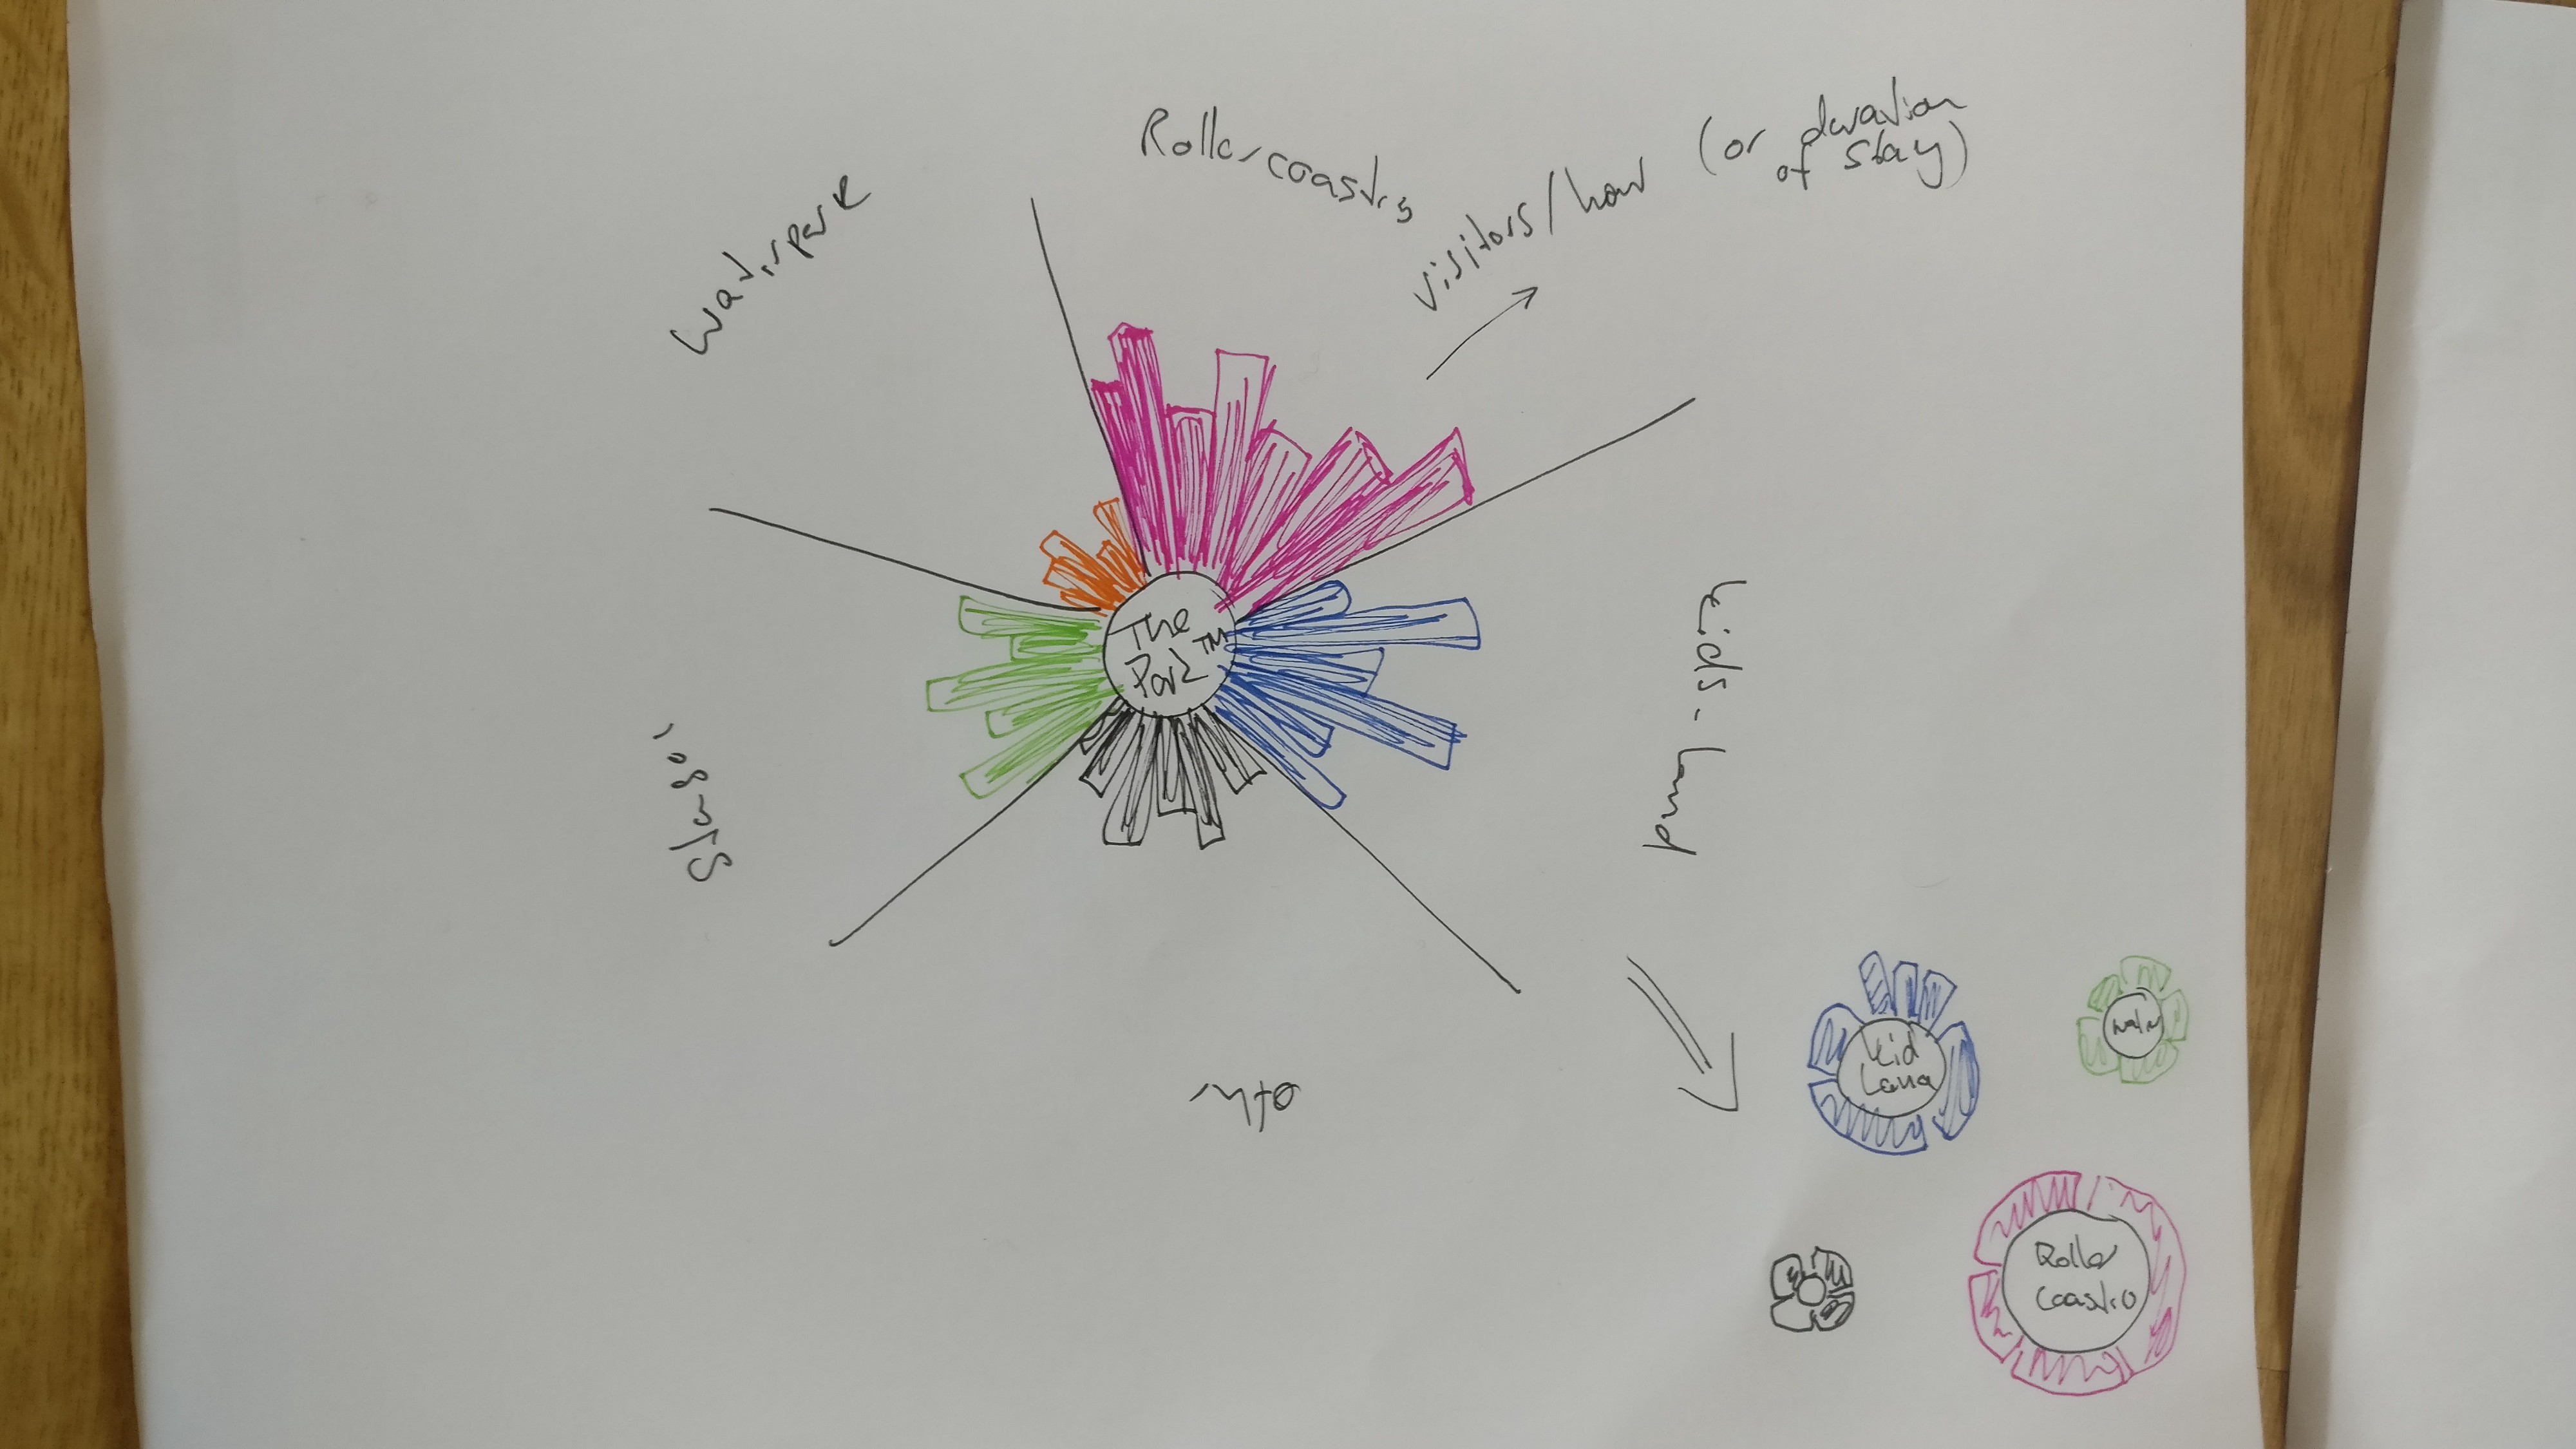 Rollercoasters
visitors/hour (or duration
of stay)
Waterpark
The
Park™
kids-land
Kid
Land
Roller
Coaster